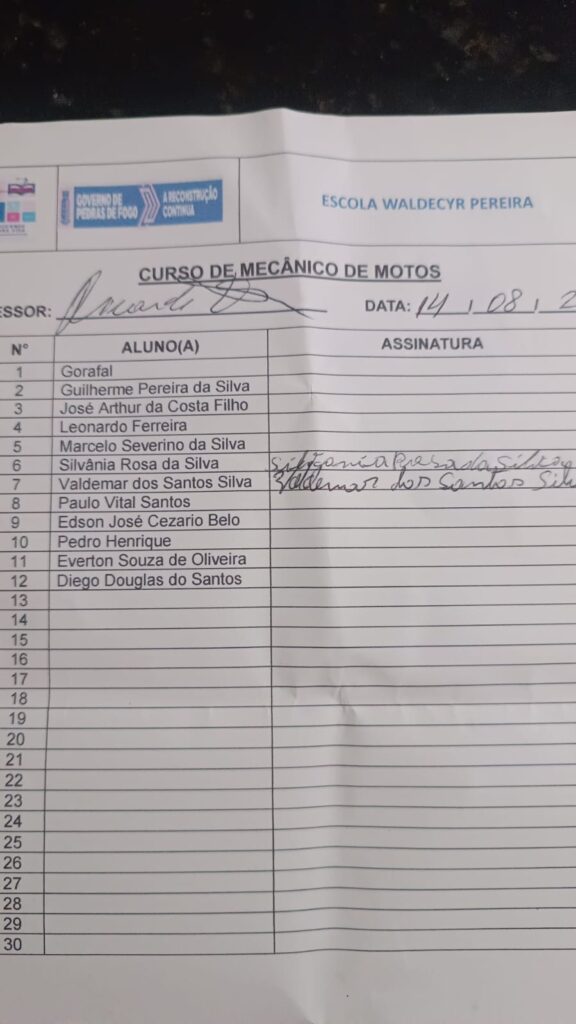 GOVERNO DE
PEDRAS DE FOGO
A RECONSTRUÇÃO
CONTINUA
ESCOLA WALDECYR PEREIRA
CURSO DE MECÂNICO DE MOTOS
ESSOR: DATA: 14 / 08 / 2
N° ALUNO(A) ASSINATURA
1 Gorafal
2 Guilherme Pereira da Silva
3 José Arthur da Costa Filho
4 Leonardo Ferreira
5 Marcelo Severino da Silva
6 Silvânia Rosa da Silva
7 Valdemar dos Santos Silva Valdemar dos Santos Sil
8 Paulo Vital Santos
9 Edson José Cezario Belo
10 Pedro Henrique
11 Everton Souza de Oliveira
12 Diego Douglas do Santos
13
14
15
16
17
18
19
20
21
22
23
24
25
26
27
28
29
30